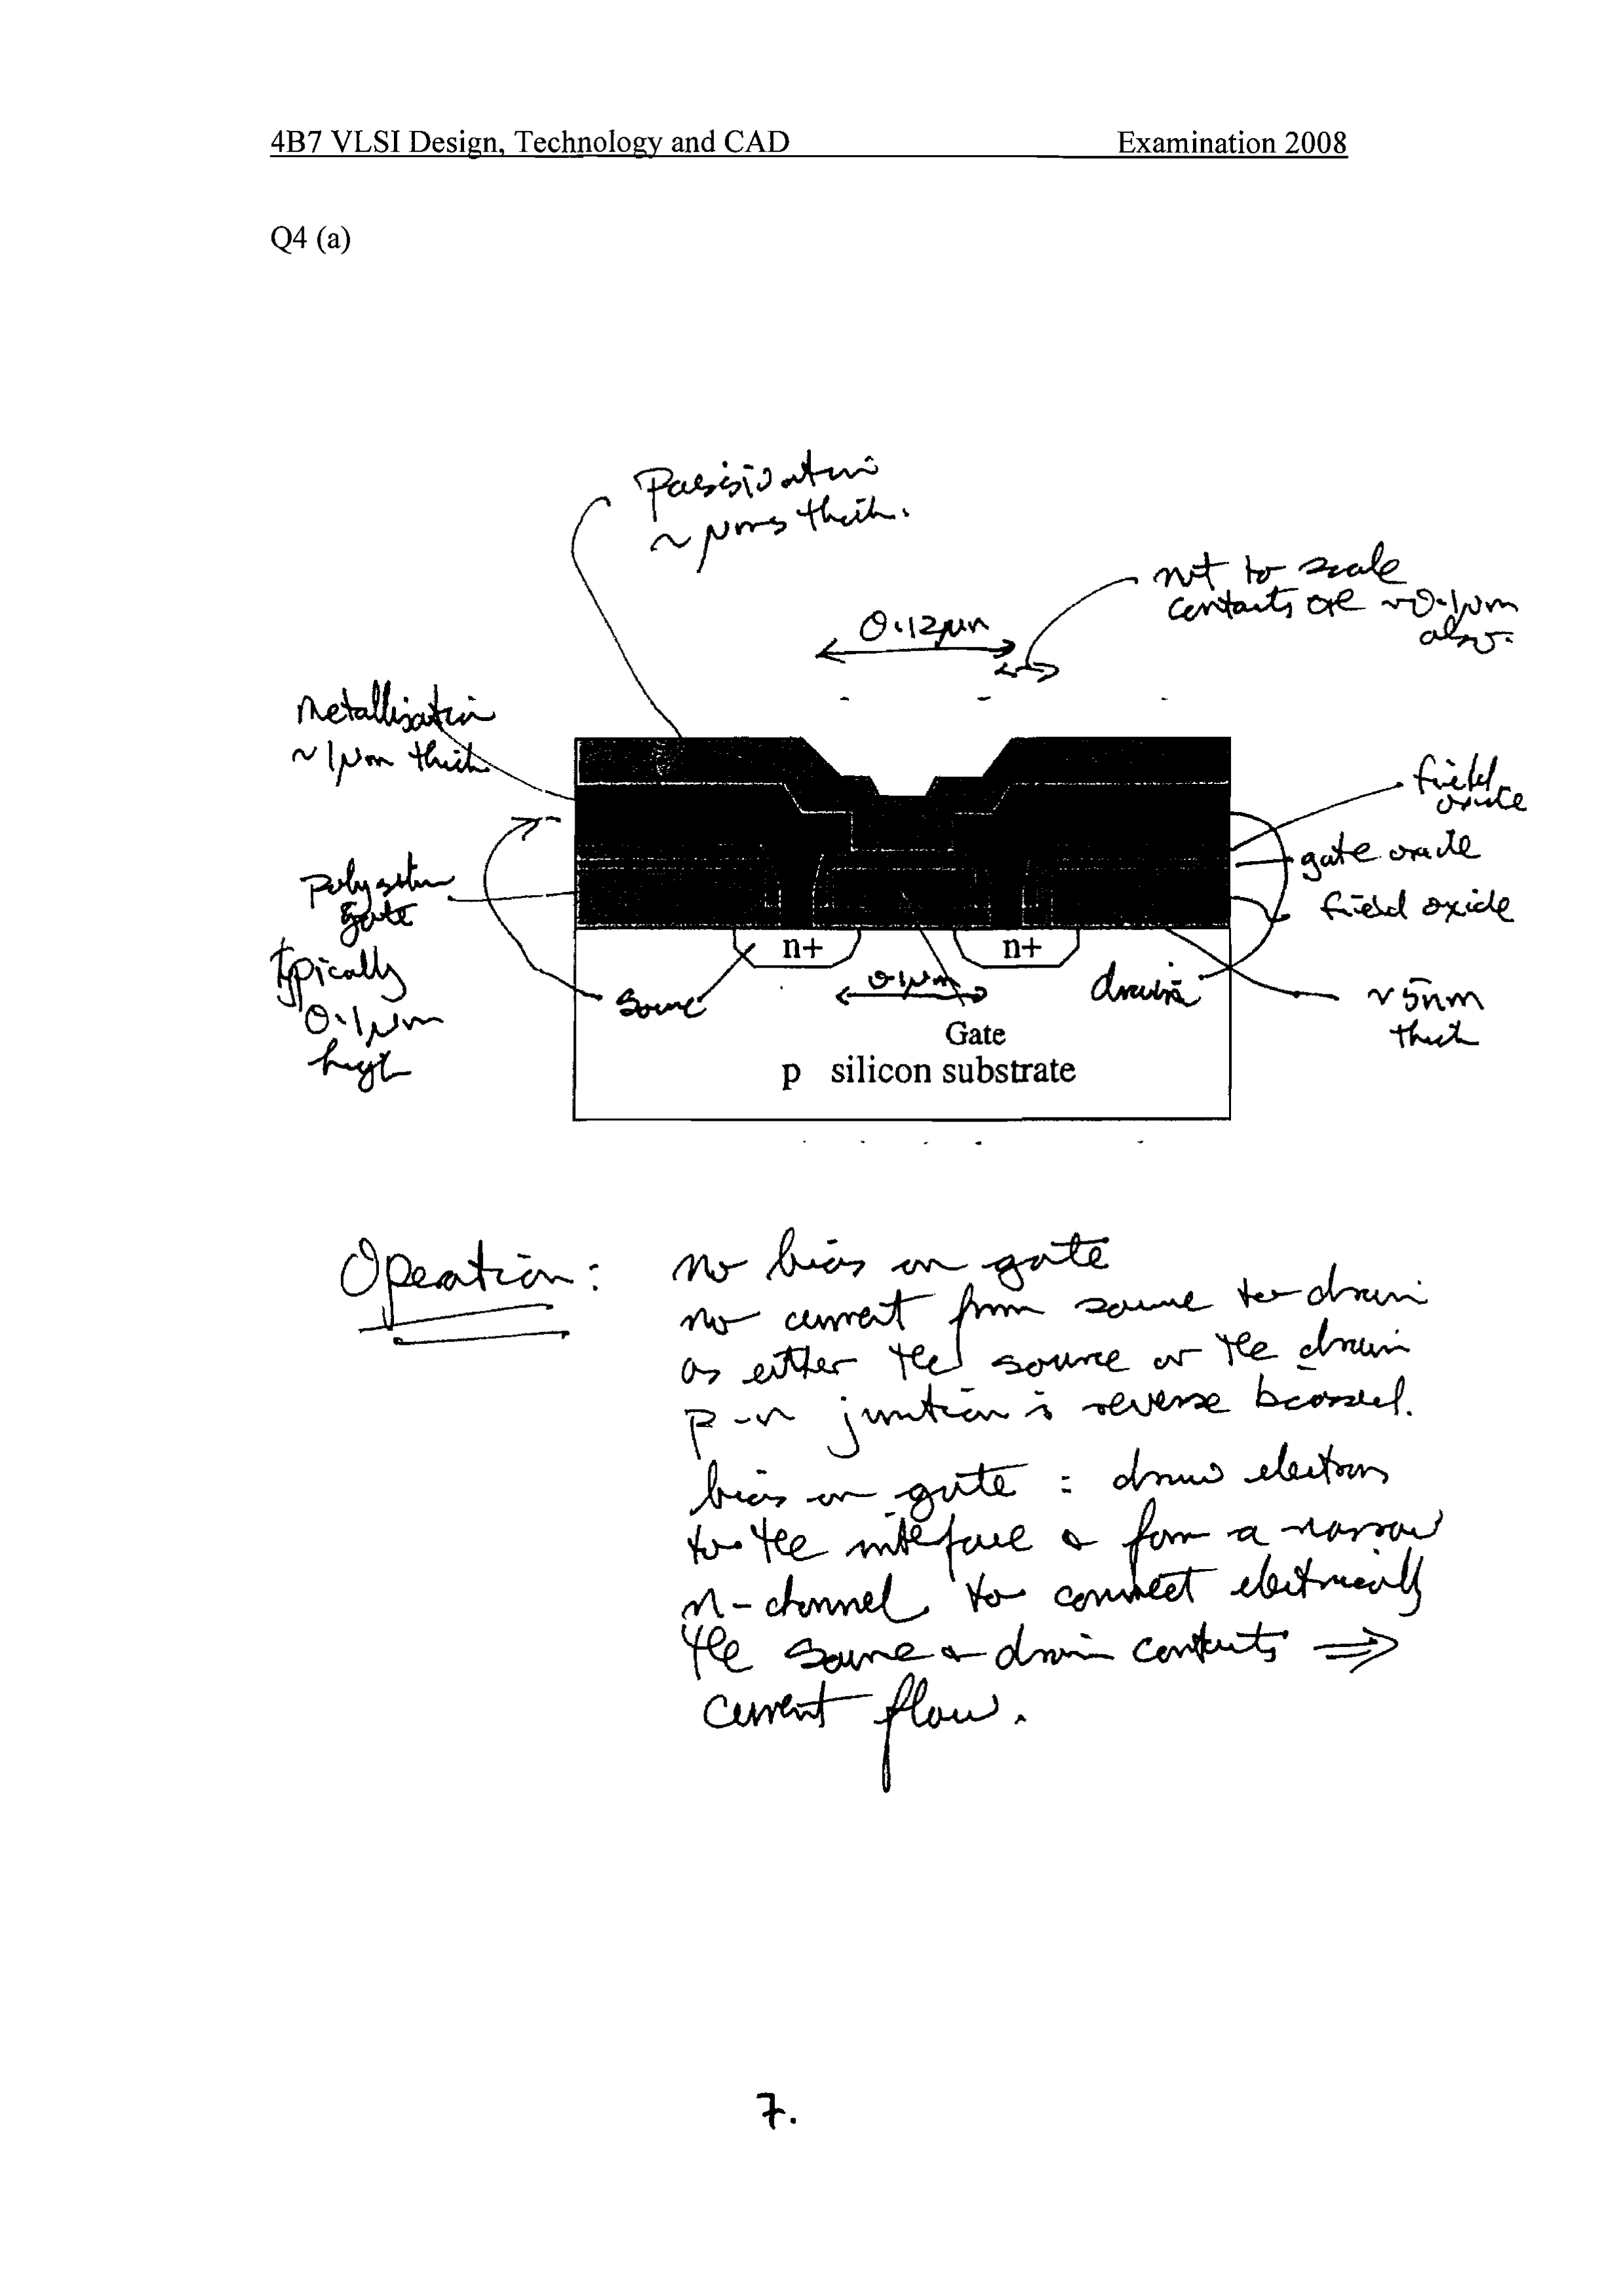 4B7 VLSI Design, Technology and CAD Examination 2008
Q4 (a)
Passivation
~ μms thick.
not to scale
contacts are ~0.1μm
also.
0.12μm
Metallisation
~1μm thick
field
oxide
gate oxide
field oxide
polysilicon
gate
typically
0.1μm
high
n+ n+
Source
0.1μm
drain
~5nm
thick
Gate
p silicon substrate
Operation: no bias on gate
no current from source to drain
as either the source or the drain
p-n junction is reverse biassed.
bias on gate : draws electrons
to the interface & form a narrow
n-channel to connect electrically
the source & drain contacts ⇒
current flow.
7.